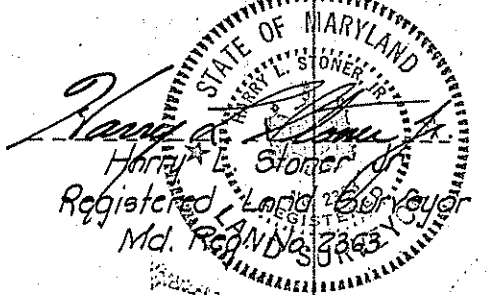 STATE OF MARYLAND
HARRY L. STONER JR.
Harry L. Stoner Jr.
Harry L. Stoner Jr.
Registered Land Surveyor
Md. Reg. No.
REGISTERED
LAND SURVEYOR